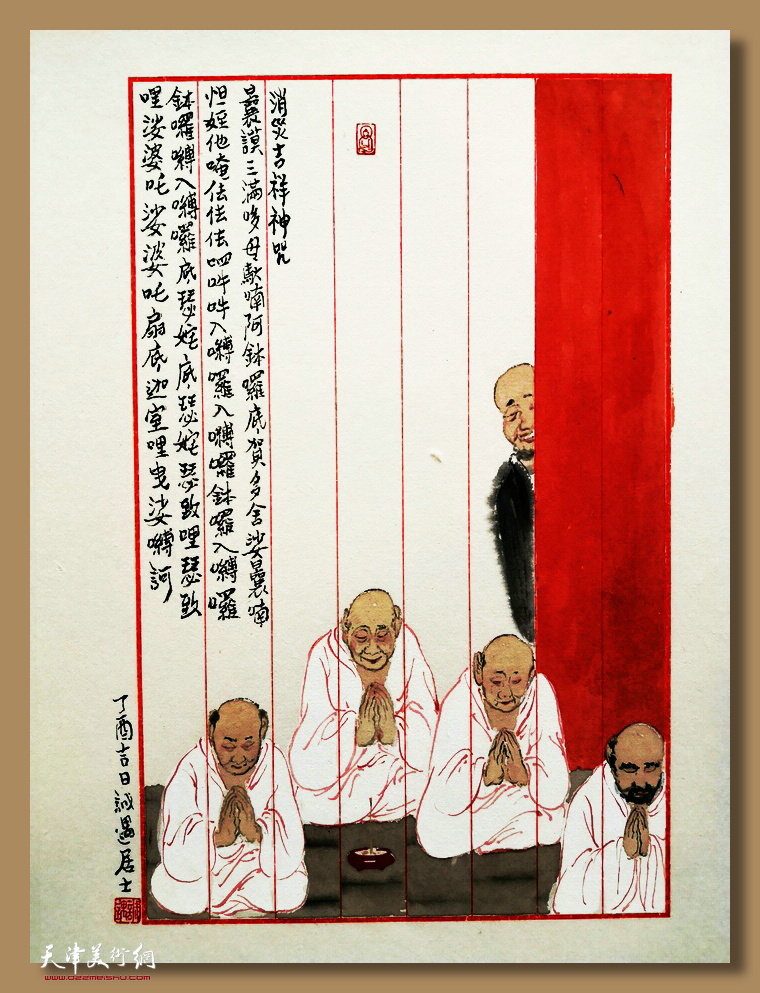 消災吉祥神咒
曩謨三滿哆母馱喃阿鉢囉底賀多舍娑曩喃
怛姪他唵佉佉佉呬吽吽入嚩囉入嚩囉鉢囉入嚩囉
鉢囉嚩入嚩囉底瑟姹底瑟姹瑟致哩瑟致
哩娑婆吒娑婆吒扇底迦室哩曳娑嚩訶
丁酉吉日誠遇居士
天津美術網
www.022meishu.com